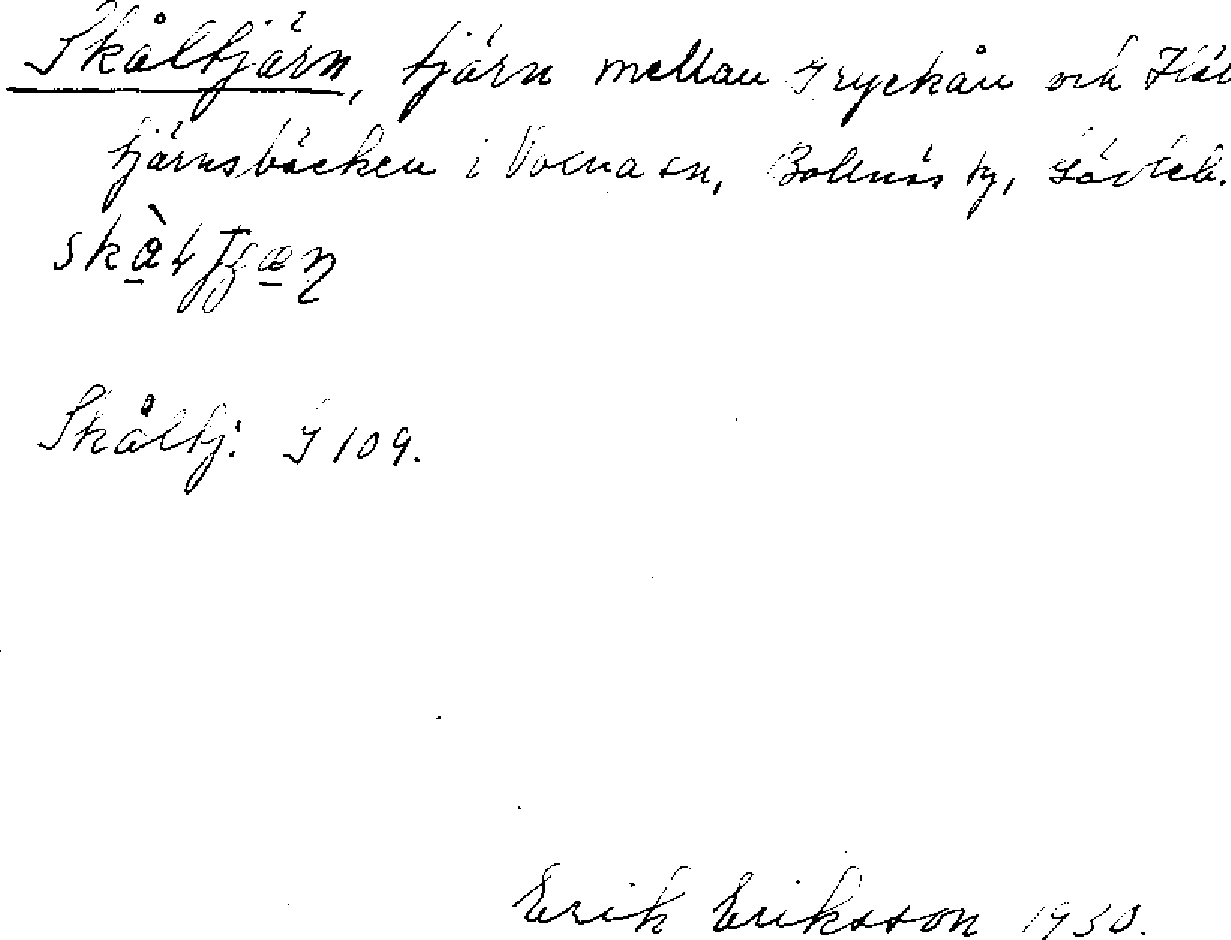 Skåltjärn, tjärn mellan Gryckån och
tjärnsbäcken i Voxna sn, Bollnäs tg, Gävleb.
Skåltj: G 109.
Erik Eriksson 1930.